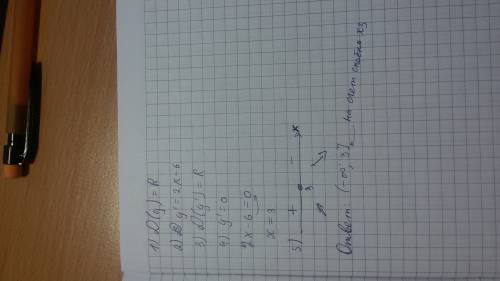 1) D(y) = R
2) y' = 2x-6
3) D(y') = R
4) y'=0
2x-6=0
x = 3
5) + 3 - x
Ответ: (-∞; 3] на счет скобки хз